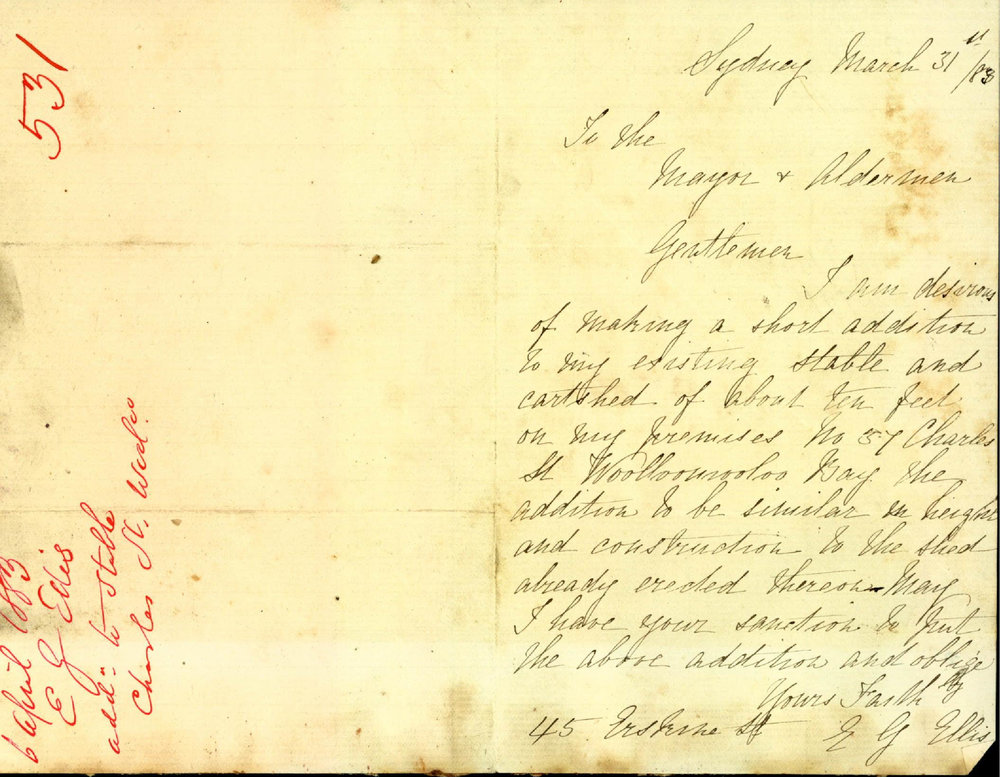 531
6 April 1883
E G Ellis
add:n to Stable
Charles St.
Sydney March 31 /83
To the
Mayor & Aldermen
Gentlemen
I am desirous
of making a short addition
to my existing stable and
cartshed of about ten feet
on my premises No 37 Charles
St Woolloomooloo Bay the
addition to be similar in height
and construction to the shed
already erected thereon - May
I have your sanction to put
the above addition and oblige
Yours Faithfy
45 Erskine St E G Ellis